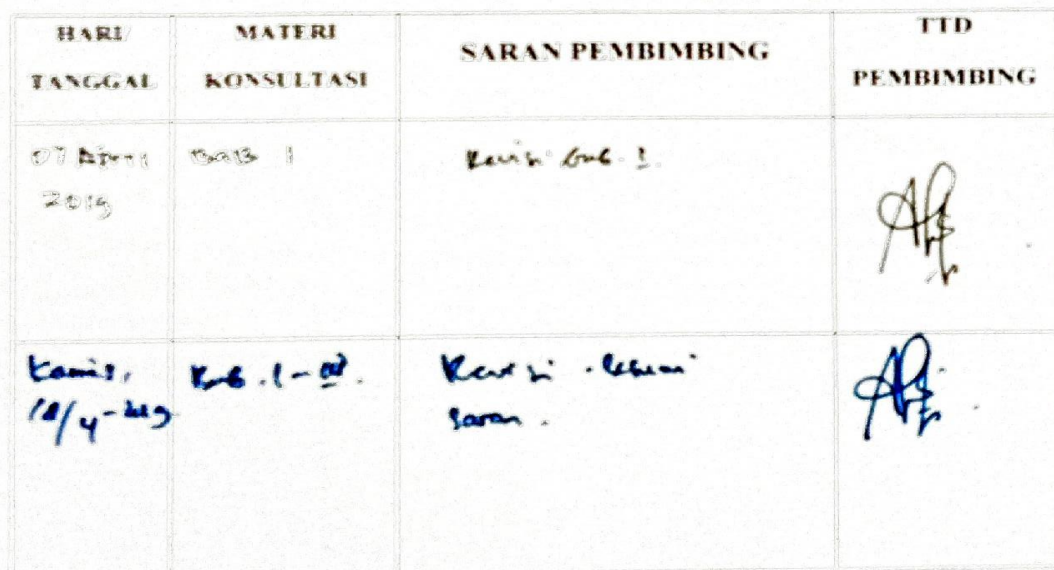 HARI/
TANGGAL
MATERI
KONSULTASI
SARAN PEMBIMBING
TTD
PEMBIMBING
07 April
2019
BAB 1
Revisi bab 1.
Kamis,
18/4-2019
Bab. I - IV.
Revisi sesuai
saran.